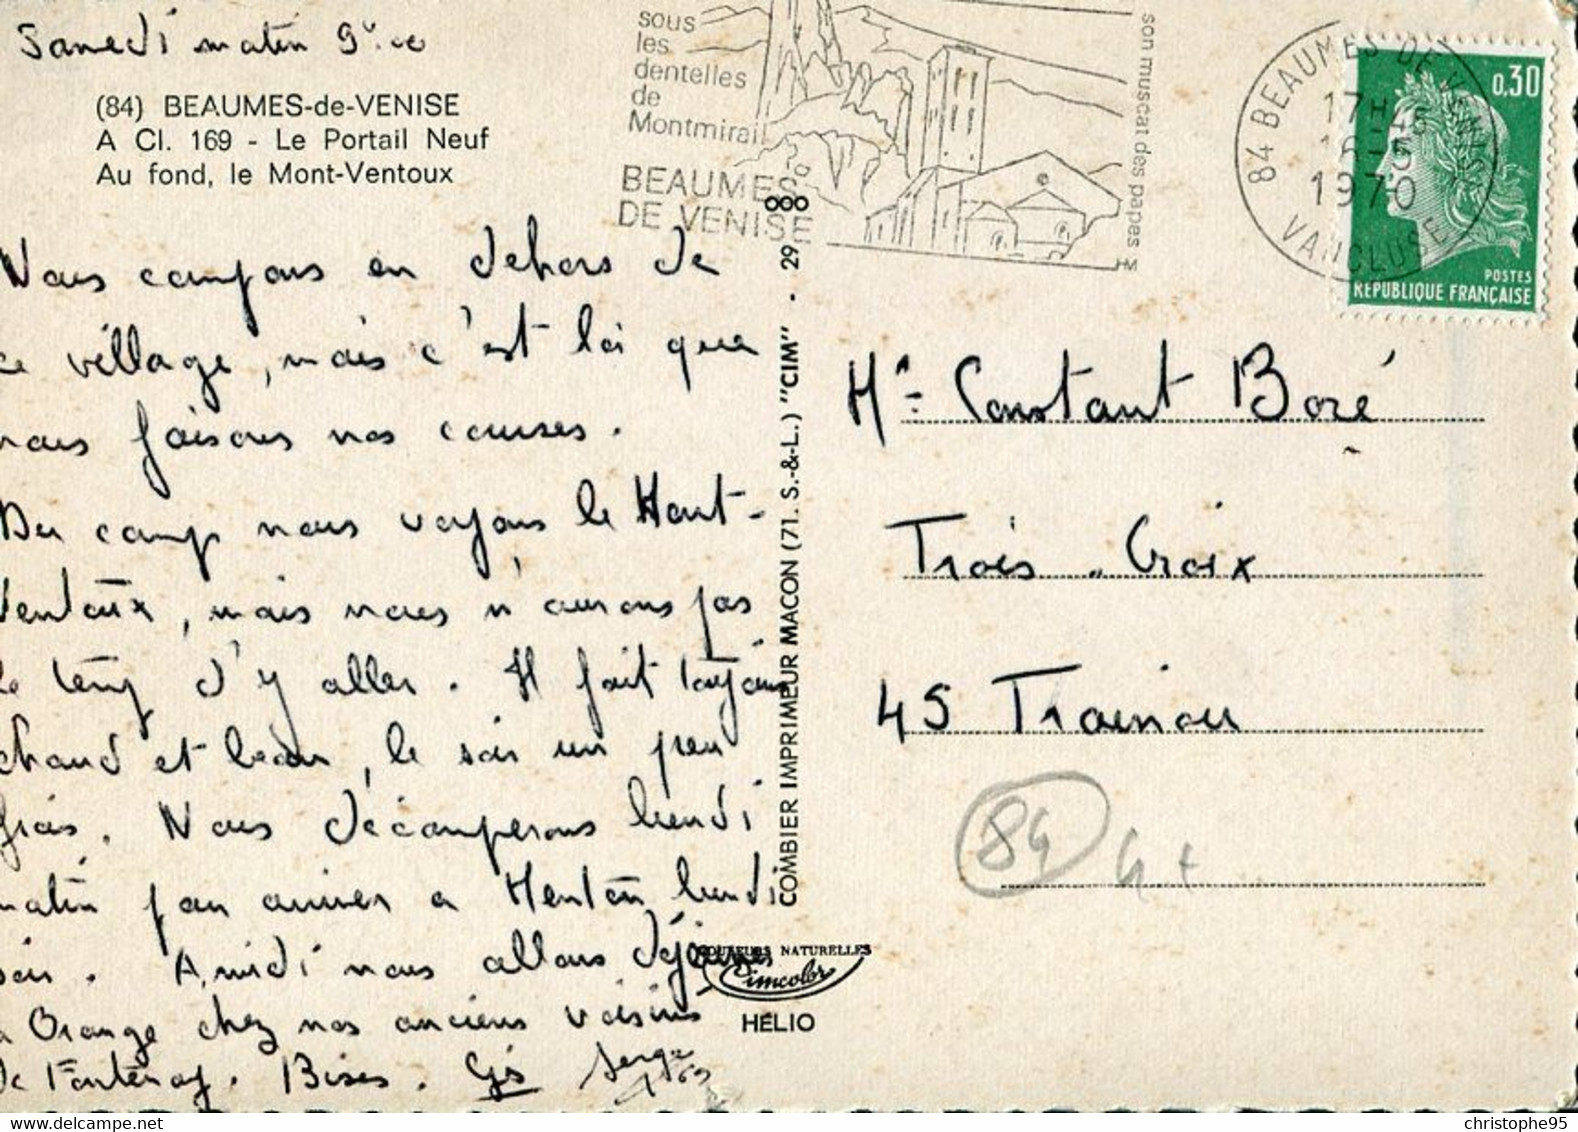 Samedi matin 9h.00
(84) BEAUMES-de-VENISE
A Cl. 169 - Le Portail Neuf
Au fond, le Mont-Ventoux
Nous campons en dehors de
ce village, mais c'est là que
nous faisons nos courses.
Du camp nous voyons le Mont-
Ventoux, mais nous n'aurons pas
le temps d'y aller. Il fait toujours
chaud et beau, le soir un peu
frais. Nous décamperons lundi
matin pour arriver a Menton lundi
soir. A midi nous allons déjeuner
a Orange chez nos anciens voisins
de Fontenay. Bises. Serge
sous
les
dentelles
de
Montmirail
BEAUMES
DE VENISE
son muscat des papes
84 BEAUMES DE VENISE
17H45
16-5
1970
VAUCLUSE
0,30
POSTES
REPUBLIQUE FRANÇAISE
COMBIER IMPRIMEUR MACON (71. S.-&-L.) "CIM" - 29
COULEURS NATURELLES
Cimcolor
HELIO
Mr Constant Boré
Trois-Croix
45 Trainou
84
christophe95